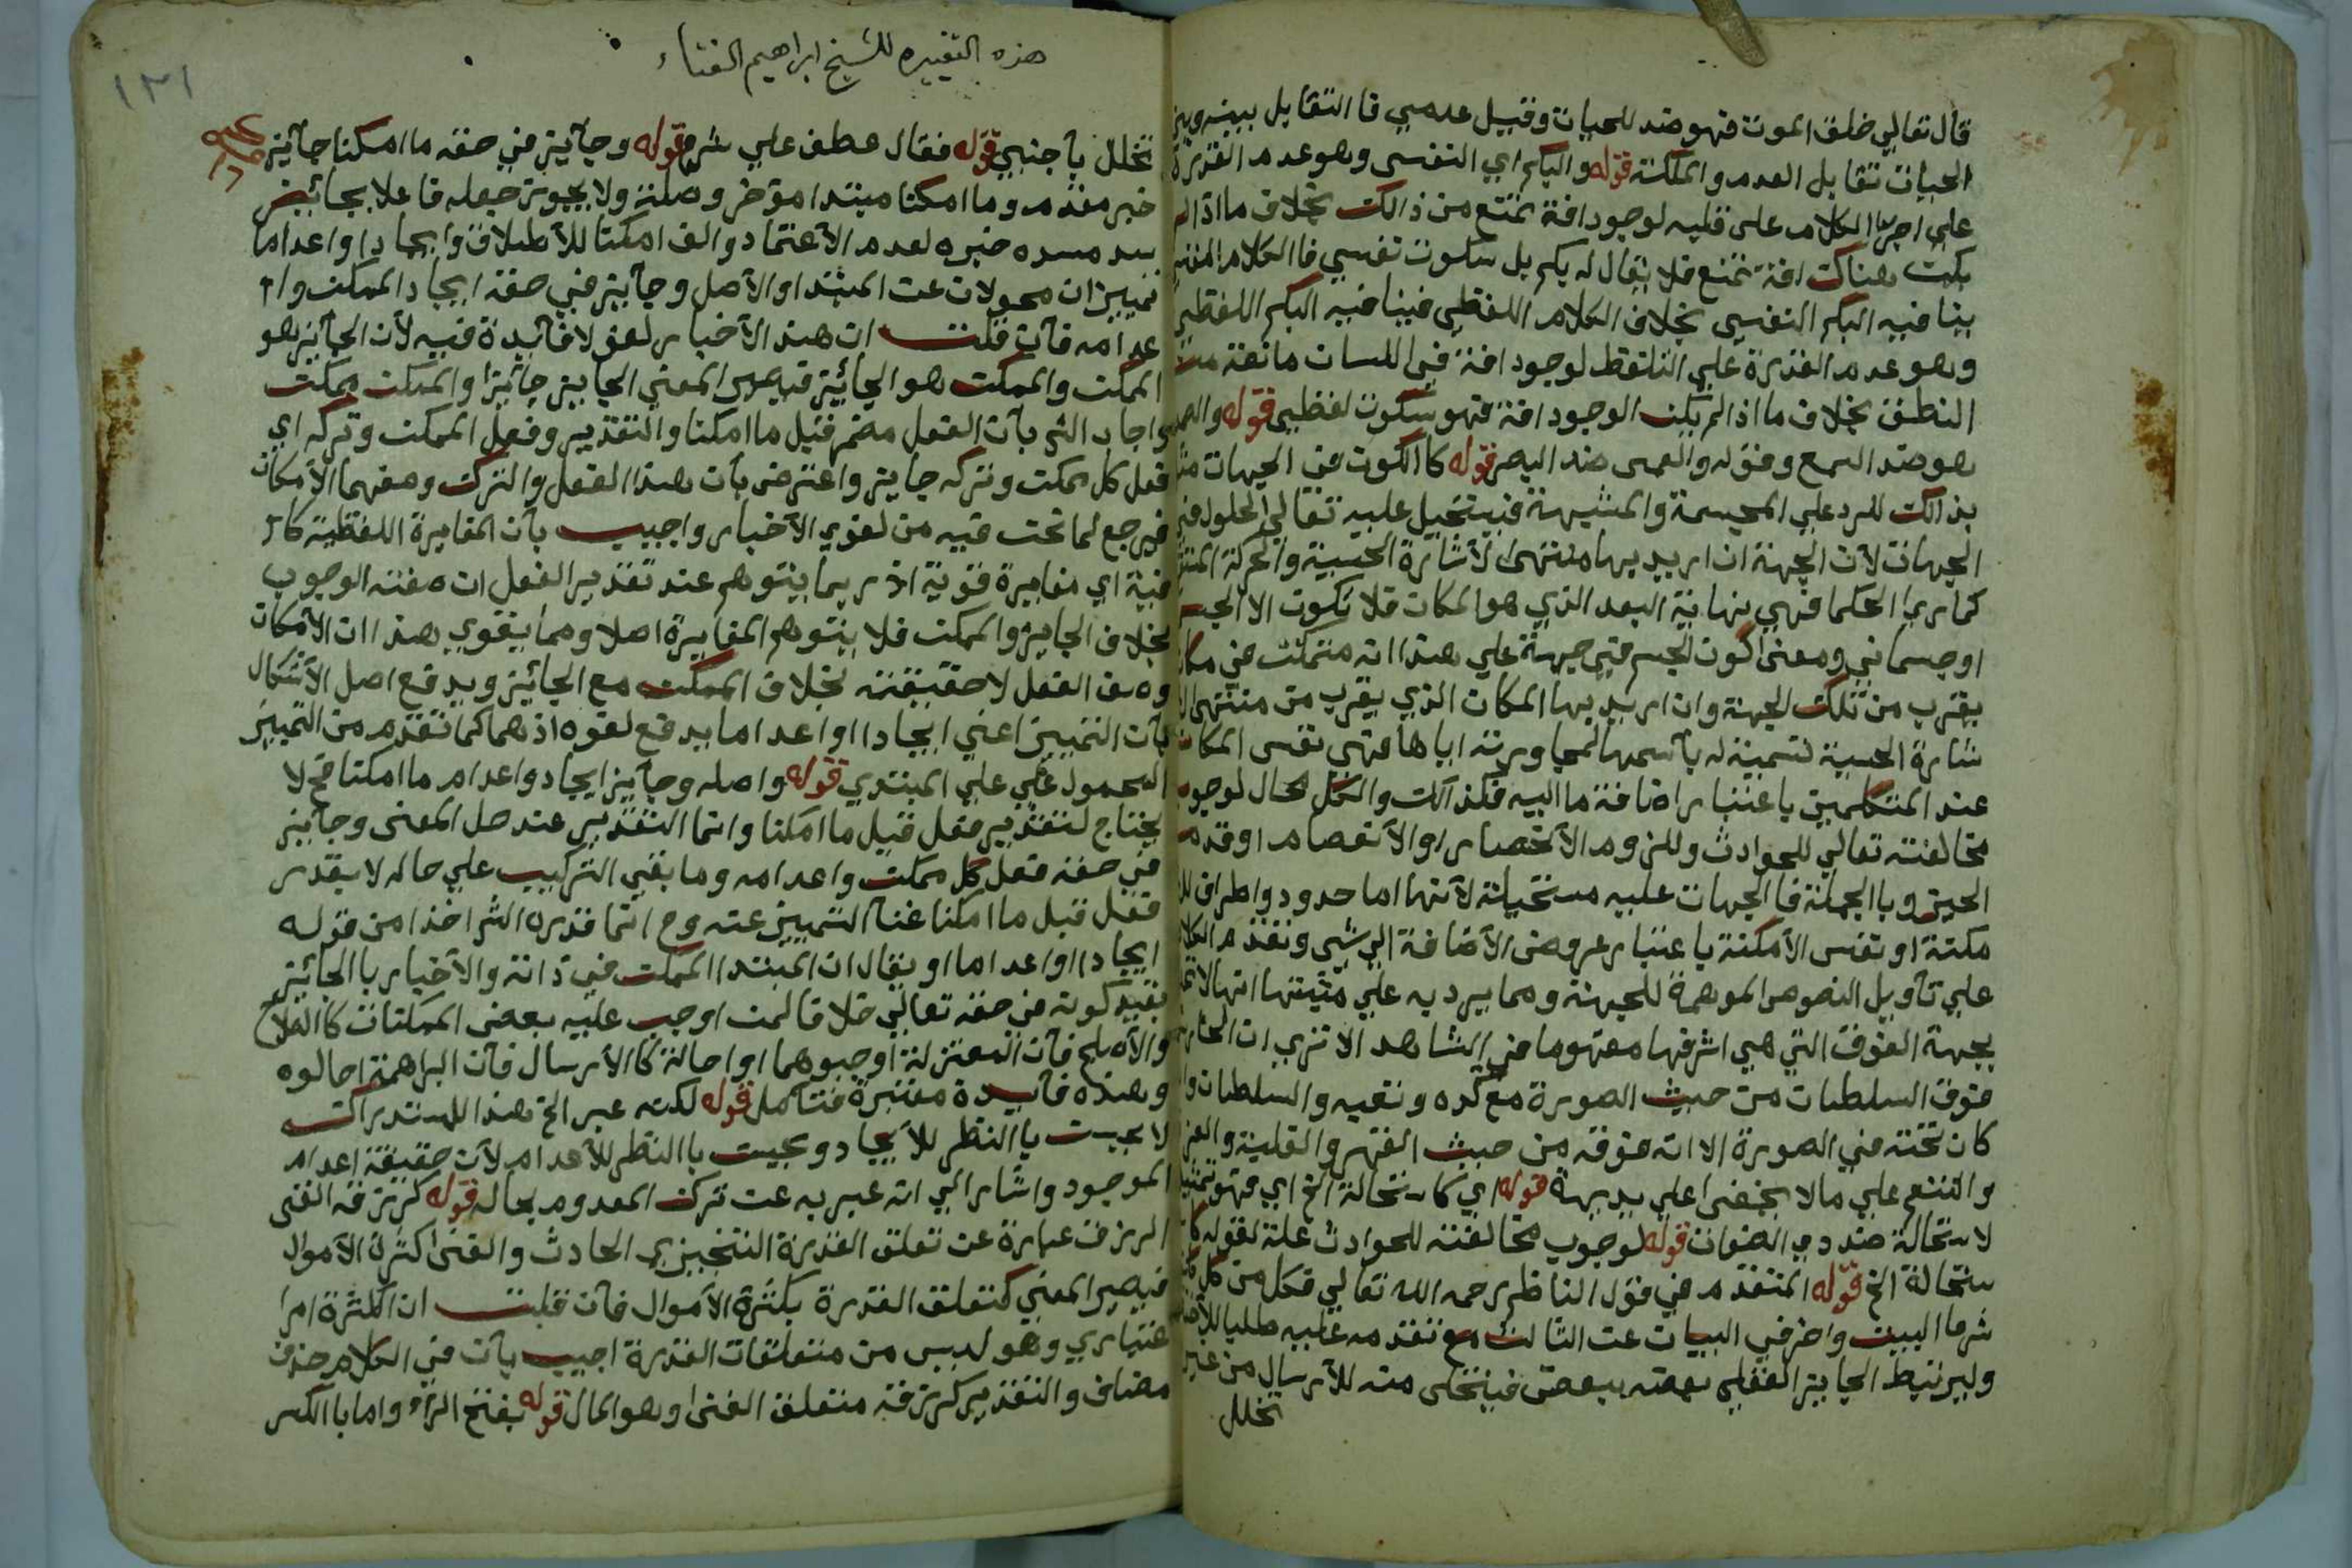 قال تعالي خلق الموت فهو ضد للحيات وقيل عدمي فا التقابل بينه وبين
الحيات تقابل العدم والملكة قوله والبكم اي النفسى وهو عدم القدرة
علي اجراا الكلام على قلبه لوجود افة تمنع من ذالك بخلاف ما اذا لم
يكن هناك افة تمنع فلا يقال له بكم بل سكوت نفسي فا الكلام النفسي
ينا فيه البكم النفسي بخلاف الكلام اللفظي فينا فيه البكم اللفظي
وهو عدم القدرة علي التلفظ لوجود افة في اللسان مانعة من
النطق بخلاف ما اذا لم يكن لوجود افة فهو سكوت لفظي قوله والصمم
هو ضد السمع وقوله والعمى ضد البصر قوله كا الكون في الجهات
بذالك للرد علي المجسمة والمشبهة فيستحيل عليه تعالي الحلول في
الجهات لأن الجهة ان اريد بها منتهى الأشارة الحسية والحركة
كما راى الحكما فهي نهاية البعد الذي هو المكان فلا تكون الا لجسم
او جسماني ومعنى كون الجسم في جهة علي هذا انه متمكن في مكان
يقرب من تلك الجهة وان اريد بها المكان الذي يقرب من منتهى الا
شارة الحسية تسمية له بأسمها لمجاورته اياها فهي نفس المكان
عند المتكلمين باعتبار اضافة ما اليه فكذالك والكل محال لوجوب
مخالفته تعالي للحوادث وللزوم الأنحصار او الأنفصام او قدم
الحيز وبا الجملة فا الجهات عليه مستحيلة لأنها اما حدود واطراف
مكنة او نفس الأمكنة باعتبار عروض الأضافة الي شي وتقدم الكلام
علي تأويل النصوص الموهمة للجهة ومما يرد به علي مثبتها
بجهة الفوق التي هي اشرفها مفهوما في الشاهد الا ترى ان الحارس
فوق السلطان من حيث الصورة مع كده وتعبه والسلطان وان
كان تحته في الصورة الا انه فوقه من حيث القهر والغلبة والعز
والتنعم علي مالا يخفى علي بديهة قوله اي كاستحالة الخ اي فهو
لاستحالة ضد ذي الصفات قوله لوجوب مخالفته للحوادث علة لقوله كا
ستحالة الخ قوله المتقدم في قول الناظم رحمه الله تعالي فكل من كلف
شرعا البيت واخر في البيان عن الثالث مع تقدمه عليه طلبا
وليرتبط الجايز العقلي بعضه ببعض فيتخلص منه للأرسال من غير
تخلل
هذه التقييده للشيخ ابراهيم الفتاء
١٣١
تخلل بأجنبي قوله فقال عطف علي شرع قوله وجآيز في حقه ما امكنا جآيز
خبر مقدم وما امكنا مبتدا مؤخر وصلة ولا يجوز جعله فاعلا بجائيز
سد مسده خبره لعدم الأعتماد والف امكنا للأطلاق وايجادا واعداما
تمييزان محولان عن المبتدا والأصل وجآيز في حقه ايجاد الممكن وا
عدامه فآن قلت ان هذ الأخبار لغو لا فآيدة فيه لأن الجآيز هو
الممكن والممكن هو الجآئيز فيصير المعني الجايز جآئيزا والممكن ممكن
واجاب الش بأن الفعل مضمر قبل ما امكنا والتقدير وفعل الممكن وتركه اي
فعل كل ممكن وتركه جايز واعترض بأن هذا الفعل والترك وصفهما الأمكان
فيرجع لما نحن فيه من لغوي الأخبار واجيب بأن المغايرة اللفظية كا
فية اي مغايرة قوية اذ ربما يتوهم عند تقدير الفعل ان صفته الوجوب
بخلاف الجايز والممكن فلا يتوهم المغايرة اصلا ومما يقوي هذا ان الأمكان
وصف الفعل لا حقيقته بخلاف الممكن مع الجائيز ويدفع اصل الأشكال
بأن التمييز اعني ايجادا او اعداما يدفع لغوه اذ هما كما تقدم من التمييز
المحمول علي علي المبتدي قوله واصله وجآيز ايجاد واعدام ما امكنا فح لا
يحتاج لتقدير فعل قبل ما امكنا وانما التقدير عند حل المعنى وجآيز
في حقه فعل كل ممكن واعدامه وما بقي التركيب علي حاله لا يقدر
فعل قبل ما امكنا غنآ التمييز عنه وح انما قدره الش اخذا من قوله
ايجادا او اعداما او يقال ان المبتدا الممكن في ذاته والأخبار با الجائيز
بقيد كونه في حقه تعالي خلافا لمن اوجب عليه بعض الممكنات كا الصلاح
والأصلح فآن المعتزلة اوجبوهما او احالة كا الأرسال فآن البراهمة احالوه
وهذه فآيدة معتبرة فتأمل قوله لكنه عبر الخ هذا الستدراك
لا يحسن با النظر للأيجاد ويحسن با النظر للأعدام لأن حقيقة اعدام
الموجود واشار الي انه عبر به عن ترك المعدوم بحاله قوله كرزقه الغنى
الرزق عبارة عن تعلق القدرة التنجيزي الحادث والغنى كثرة الأموال
فيصير المعني كتعلق القدرة بكثرة الأموال فآن قلت ان الكثرة امرا
عتباري وهو ليس من متعلقات القدرة اجيب بآن في الكلام حذف
مضاف والتقدير كرزقه متعلق الغنى وهو المال قوله بفتح الراء واما با الكسر